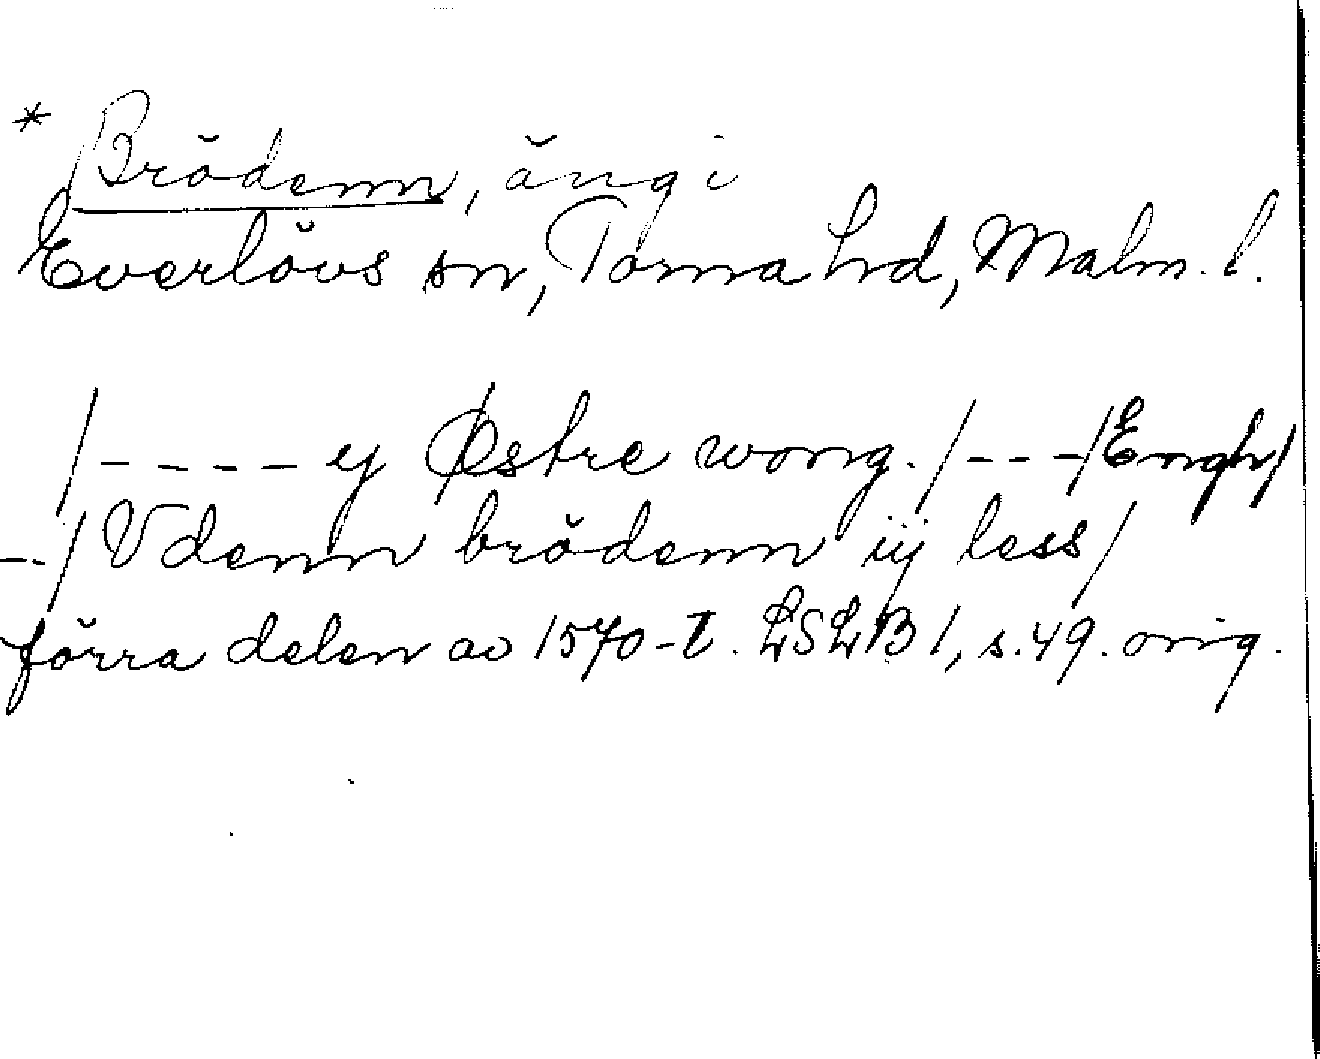 * Brödenn, äng i
Everlövs sn, Torna hrd, Malm. l.
/---- y Østre wong. /---/Engh/
--/ Vdenn brödenn iij less/
förra delen av 1570-t. LSLB 1, s. 49. orig.